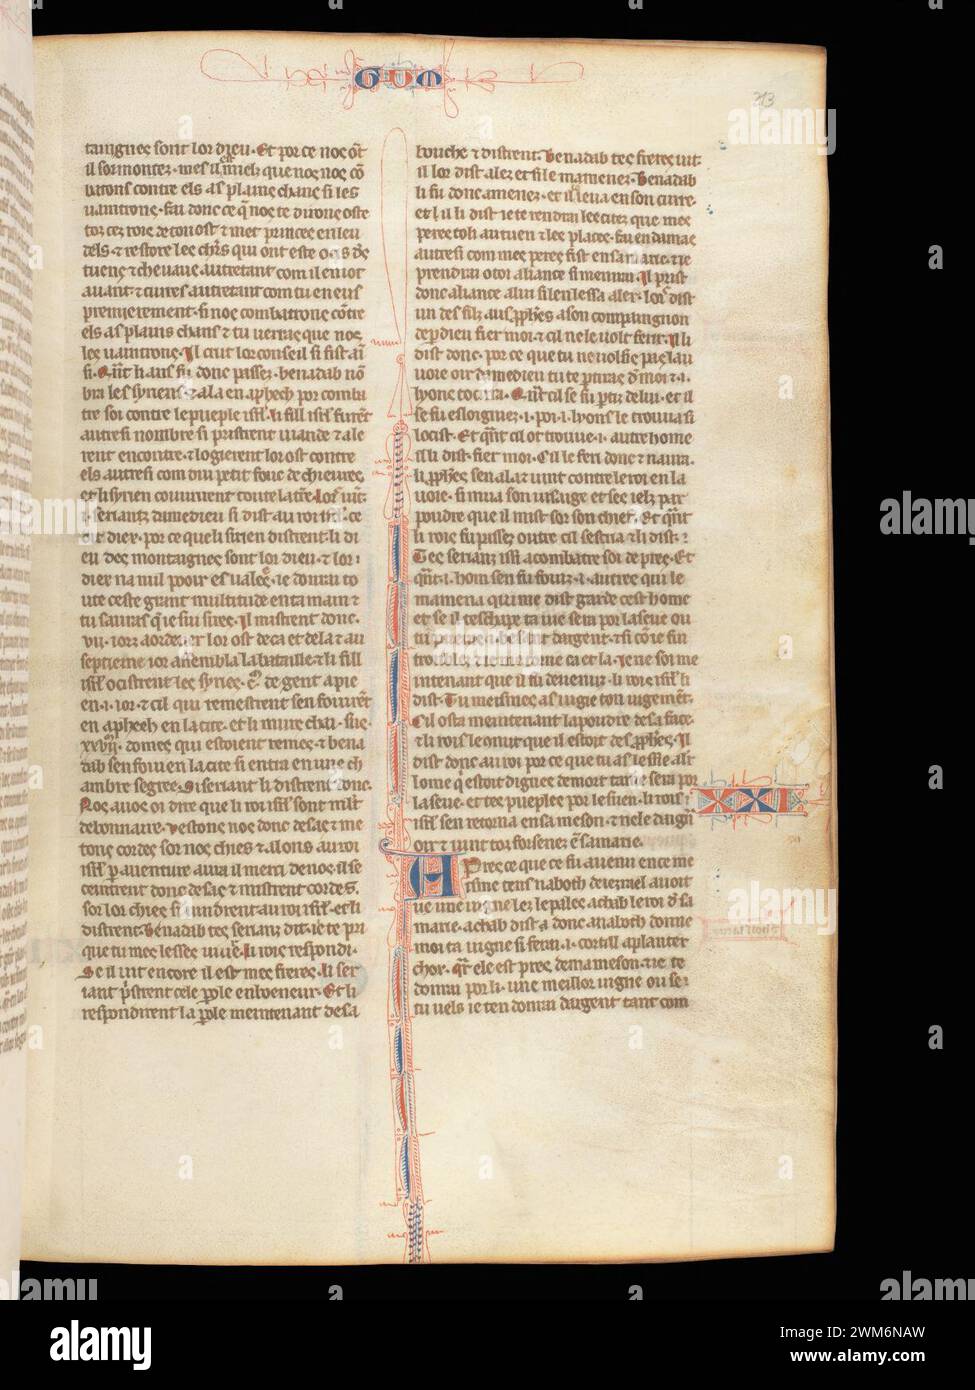 GUM
213
taignes sont lor dieu. Et por ce nos ōt
il sormontez. mes il miels que nos nos cō
batons contre els as plains chans si les
uaintrons. Fai donc ce q̄ nos te dirons oste
toz cez rois de ton ost & met princes en leu
dels. & restore les chrs qui ont este ocis des
tuens & cheuaus autretant com il en iot
auant. & curres autretant com tu en eus
premierement. si nos combatrons cōtre
els as plains chans & tu uerras que nos
les uaintrons. Il crut lor conseil si fist ai
si. Qn̄t li ans fu donc passez. benadab nō
bra les syriens. & ala en apheth por comba
tre soi contre le pueple isrl. li fill isrl furēt
autresi nombre si pristrent uiande & ale
rent encontre. & logierent lor ost contre
els autresi com dui petit fouc de chieures.
et li syrien couurirent toute la tre. Lors uīt
.i. serianz damedieu si dist au roi isrl. ce
dit dieu. por ce que li sirien distrent. li di
eu des montaignes sont lor dieu. & lor
dieu na nul pooir es ualees. ie donrai to
ute ceste grant multitude en ta main &
tu sauras q̄ ie sui sires. Il mistrent donc.
.vii. iorz a ordener lor ost deca et dela. & au
septieme ior assembla la bataille. & li fill
isrl ocistrent les syriens. C. M. de gent a pie
en .i. ior. & cil qui remestrent sen fouirēt
en apheth en la cite. et li murs chai sus
xxvii. homes qui estoient remes. & bena
dab sen foui en la cite si entra en une ch
ambre segree. Si seriant li distrent donc.
Nos auos oi dire que li roi isrl sont mlt
debonnaire. Vestons nos donc de sas & me
tons cordes sor nos chies & alons au roi
isrl par auenture aura il merci de nos. il se
ceinstrent donc de sas & mistrent cordes
sor lor chies si uindrent au roi isrl. et li
distrent. Benadab tes serianz dit. ie te pri
que tu me lesses uiure. Li rois respondi.
Se il uit encore il est mes freres. li ser
iant pristrent cele parole en boneur. Et li
respondirent la parole meintenant de sa
bouche & distrent. Benadab tes freres uit.
il lor dist alez et si le mamenez. Benadab
li fu donc amenez. et il leua en son curre.
et il li dist ie te rendrai les citez que mes
peres toli au tuen & les places. fai en damas
autresi com mes peres fist en samarie. & ie
prendrai o toi aliance si men irai. Il prist
donc aliance a lui si len lessa aler. lors dist
un des filz aus prophes a son compaignon
de par dieu fier moi. & cil ne le uolt ferir. Il li
dist donc. por ce que tu ne uolsis pas la
uoiz oir damedieu tu te partiras de moi & .i.
lyons tocirra. Quāt cil se fu partiz de lui. et il
se fu esloigniez .i. poi .i. lyons le trouua si
locist. Et qn̄t cil ot trouue .i. autre home
il li dist. fier moi. Cil le feri donc & naura.
li prophes sen ala & uint contre le roi en la
uoie. si mua son uisage et ses ielz par
poudre que il mist sor son chief. Et qn̄t
li rois fu passez outre cil sescria & li dist.
Tes serianz issi a combatre soi de pres. Et
qn̄t .i. hom sen fu fouiz .i. autres qui le
mamena qui me dist garde cest home
et se il teschape ta uie sera por la seue ou
tu paieras .i. besant dargent. & si cō ie fui
troublez & ie me torne ca et la. Ie ne soi me
intenant que il fu deuenuz. li rois isrl li
dist. Tu meismes as iugie ton iugemēt.
Cil osta meintenant la poudre de sa face.
& li rois le conut que il estoit des prophes. Il
dist donc au roi por ce que tu as lessie aler
lome q̄ estoit dignes de mort. tame sera por
la seue. et tes pueples por le suen. li rois
isrl sen retorna en sa meson. & ne le daigna
oir & uint toz forsenez ē samarie.
XXI
Apres ce que ce fu auenu en ce me
isme tens naboth de iezrael auoit
une uigne lez le palec achab le roi de sa
marie. achab dist a donc a naboth donne
moi ta uigne si ferai .i. cortill a planter
chox. qr ele est pres de ma meson. & ie te
donrai por li .une meillor uigne ou se
tu uels ie ten donrai dargent tant com
alamy
Image ID: 2WM6NAW
www.alamy.com